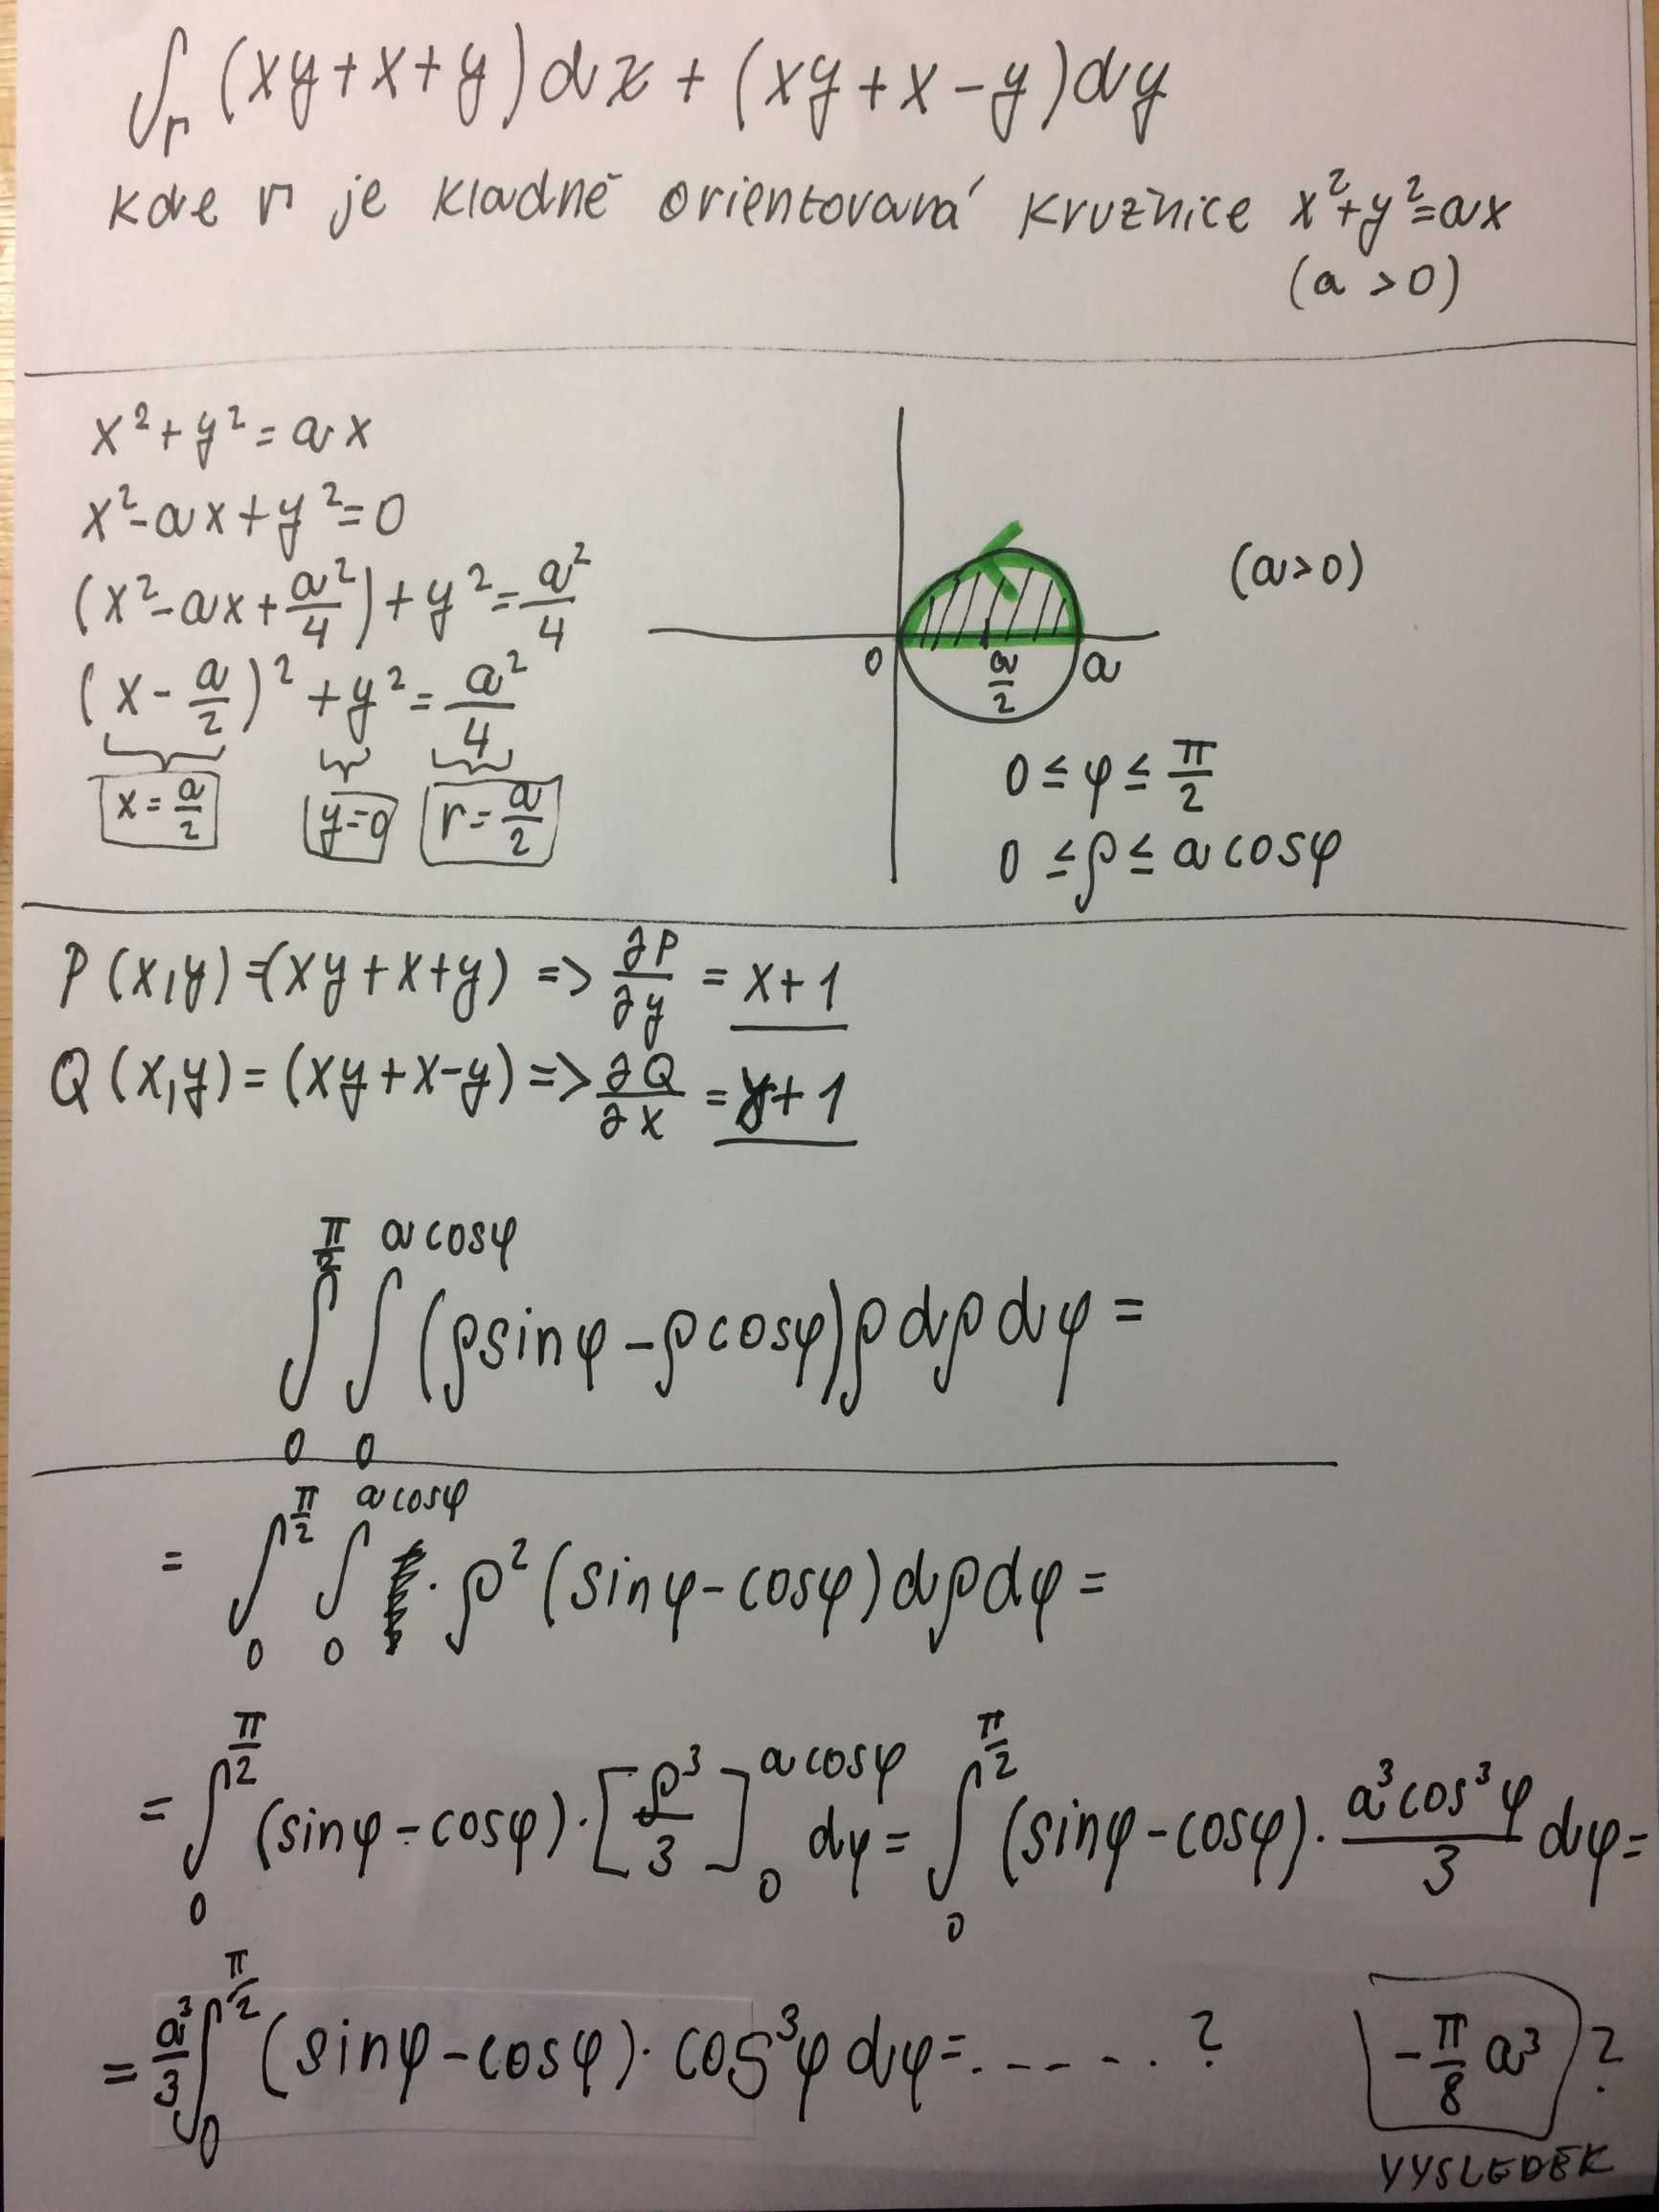 ∫r (xy+x+y)dx + (xy+x-y)dy
kde r je kladně orientovaná kružnice x²+y²=ax
(a >0)
x²+y²=ax
x²-ax+y²=0
(x²-ax+a²/4)+y²=a²/4
(x-a/2)²+y²=a²/4
x=a/2 y=0 r=a/2
(a>0)
0 a/2 a
0≤φ≤π/2
0≤ρ≤a cosφ
P(x,y)=(xy+x+y) => ∂P/∂y = x+1
Q(x,y)=(xy+x-y) => ∂Q/∂x = y+1
∫₀^(π/2) ∫₀^(a cosφ) (ρsinφ-ρcosφ)ρdρdφ=
= ∫₀^(π/2) ∫₀^(a cosφ) · ρ²(sinφ-cosφ)dρdφ=
= ∫₀^(π/2) (sinφ-cosφ)·[ρ³/3]₀^(a cosφ) dφ= ∫₀^(π/2) (sinφ-cosφ)· a³cos³φ/3 dφ=
= a³/3 ∫₀^(π/2) (sinφ-cosφ)·cos³φ dφ=.----.? -π/8 a³ ?
VYSLEDEK